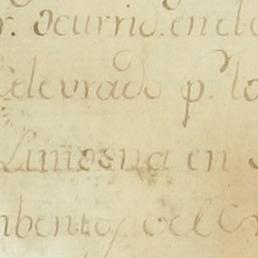 r. ocurrid. en el
Celevrado p. lo
Limosna en
mbento, del